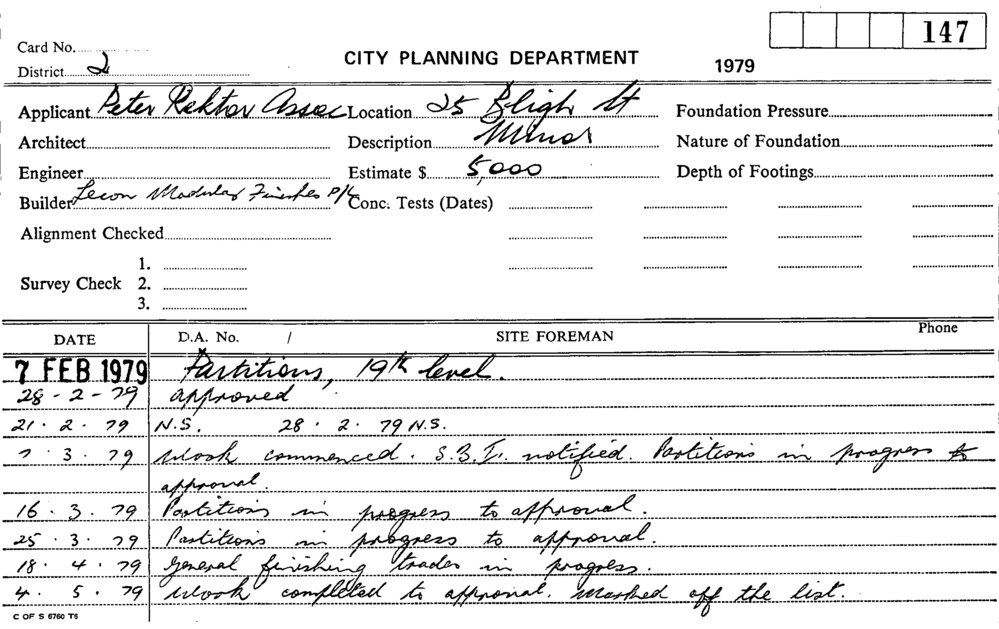 147
Card No.
CITY PLANNING DEPARTMENT 1979
District 2
Applicant Peter Rektor Assoc Location 25 Bligh St Foundation Pressure
Architect Description Minor Nature of Foundation
Engineer Estimate $ 5,000 Depth of Footings
Builder Modular Finishes P/L Conc. Tests (Dates)
Alignment Checked
1.
Survey Check 2.
3.
DATE D.A. No. / SITE FOREMAN Phone
7 FEB 1979 Partitions, 19th level.
28-2-79 approved
21.2.79 N.S. 28.2.79 N.S.
7.3.79 Work commenced. notified. Partitions in progress to
approval.
16.3.79 Partitions in progress to approval.
25.3.79 Partitions in progress to approval.
18.4.79 General finishing trades in progress.
4.5.79 Work completed to approval. Marked off the list.
C OF S 6760 T6